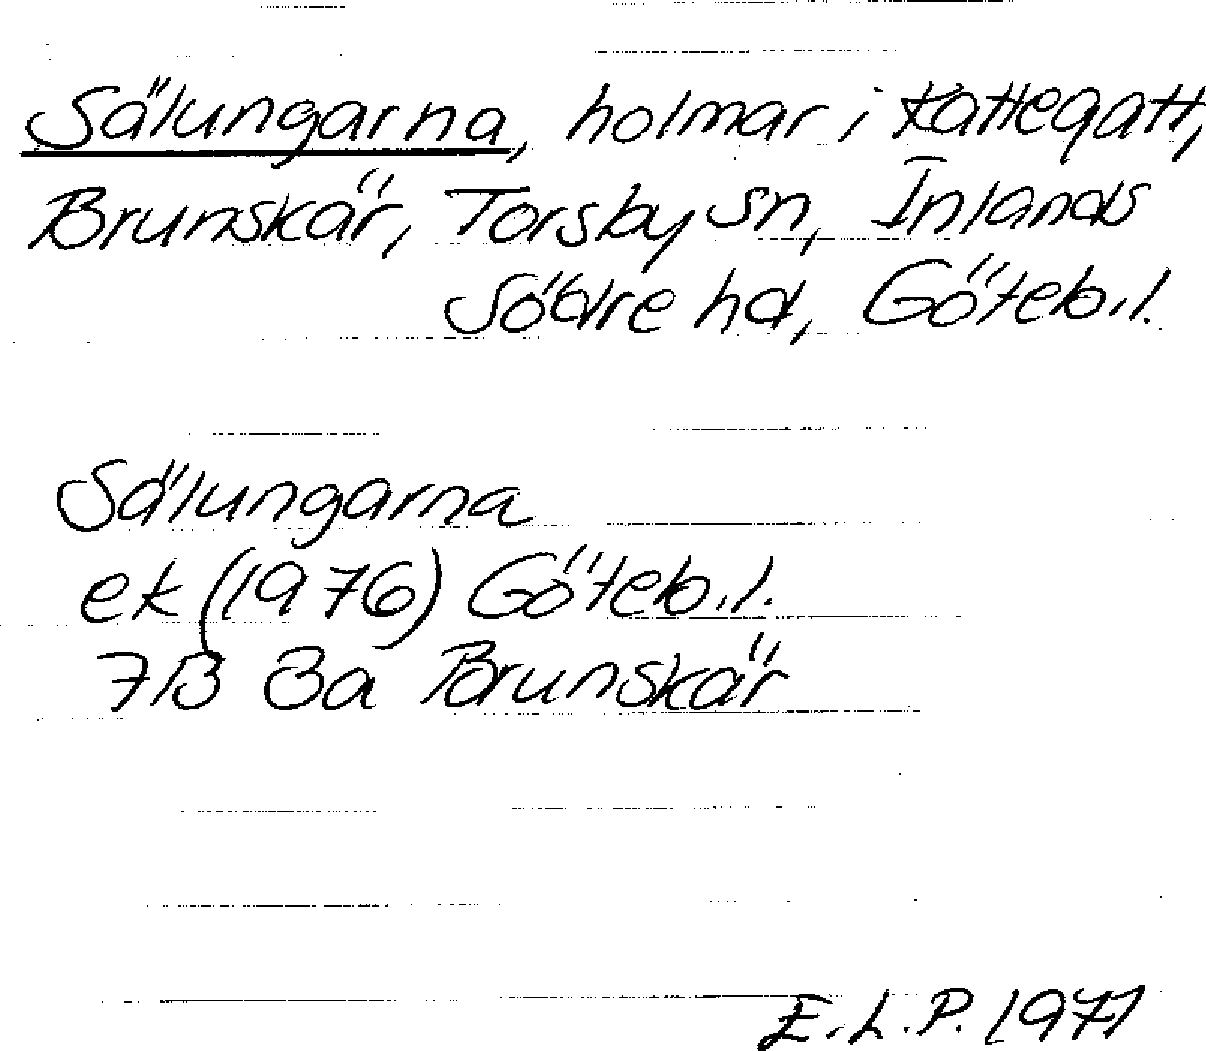 Sälungarna, holmar i Kattegatt,
Brunskär, Torsby sn, Inlands
Södre hd, Göteb.l.
Sälungarna
ek (1976) Göteb.l.
7B 3a Brunskär
E.L.P. 1977